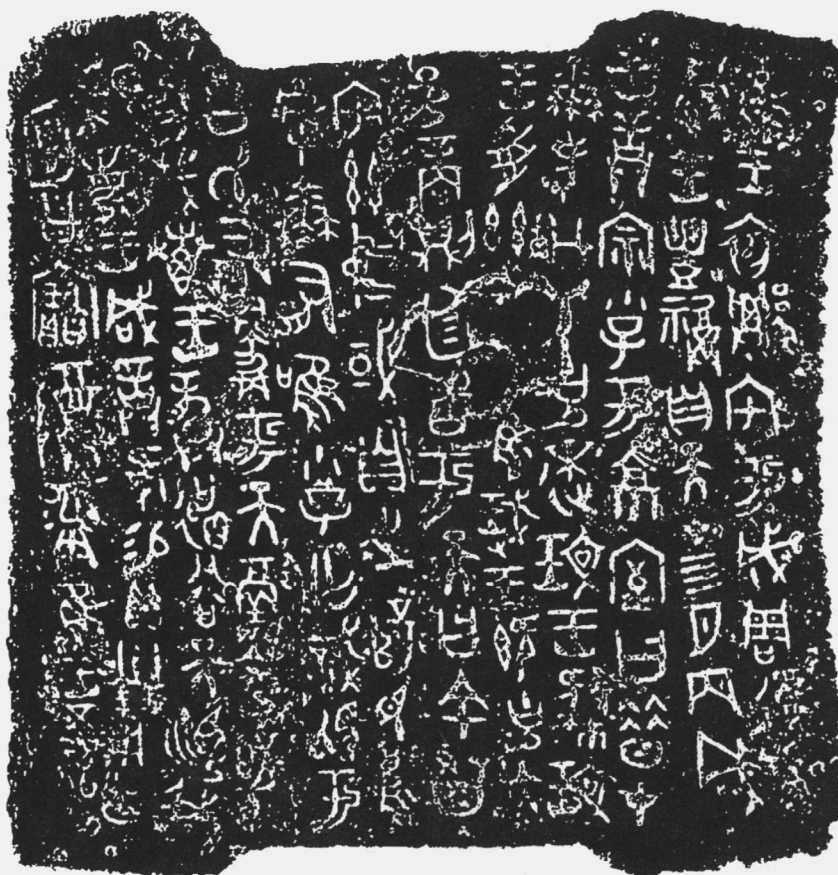 隹王初遷宅于成周復爯
珷王豐祼自天才四月丙戌
王誥宗小子于京室曰昔才
爾考公氏克逨玟王肆玟
王受茲隹珷王既克大
邑商則廷告于天曰余其
宅茲中或自之乂民烏
虖爾有唯小子亡識視于
公氏有爵于天徹令苟
享哉叀王龏德谷天順我
不每王咸誥何易貝卅朋用乍
公寶尊彝隹王五祀